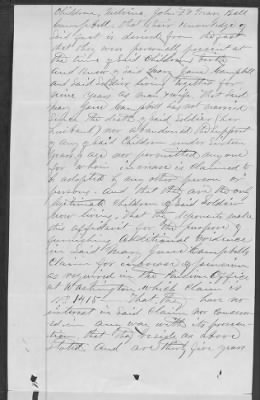 Children, John
Campbell, that their Knowledge of
said facts is derived from the fact
that they were personally present at
the time of said Childrens birth
and Know of said Mary Jane Campbell
and said Soldier living together for
five years as man & wife That said
Mary Jane Campbell has not married
since the death of said Soldier (her
husband) nor abandoned the support
of any of said Children under sixteen
years of age nor permitted any one
for whom increase is claimed
to adopted by any other person or
persons. And that they are the only
legitimate Children of said Soldier
now living, that the deponents make
this affidavit for the purpose of
furnishing Additional Evidence
in said Mary Jane Campbells
Claim for increase of pension
as required in the Pension Office
at Washington, which Claim is
No 1415 That they have no
interest in said Claim nor concerned
in any way with its prosecu-
tion that they reside as above
stated and are thirty five years